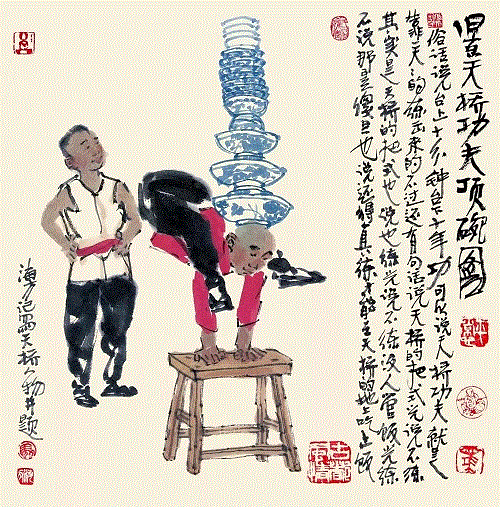 旧天桥功夫顶碗图
俗话说台上十分钟台下十年功可以说天桥功夫就是
靠天天的练出来的不过还有句话说天桥的把式光说不练
其实是天桥的把式也说也练光说不练没人管饭光练
不说那是傻旦也说还得真练才能在天桥的地上吃上饭
海方记写天桥人物并题